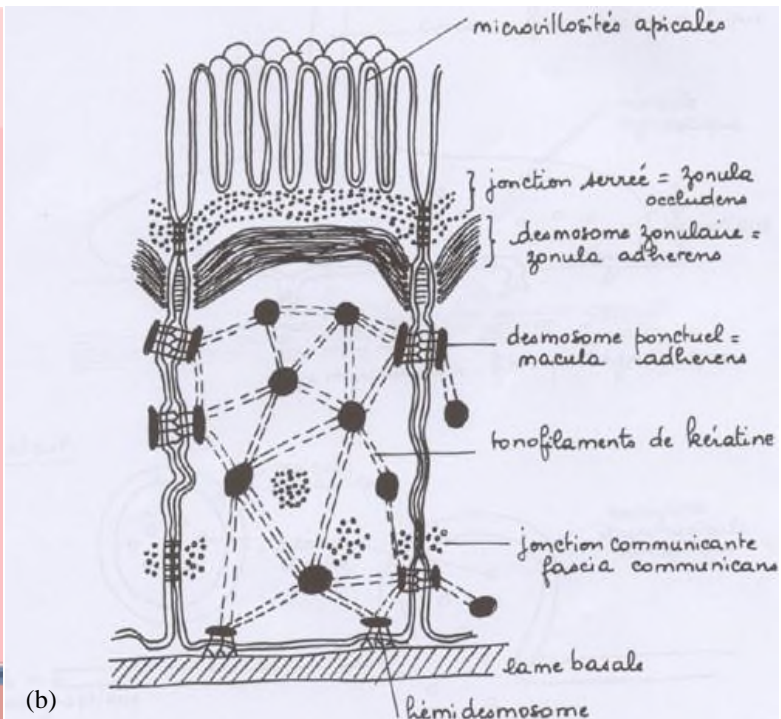 microvillosités apicales
jonction serreé = zonula
occludens
desmosome zonulaire =
zonula adherens
desmosome ponctuel =
macula adherens
tonofilaments de kératine
jonction communicante
fascia communicans
lame basale
hémidesmosome
(b)